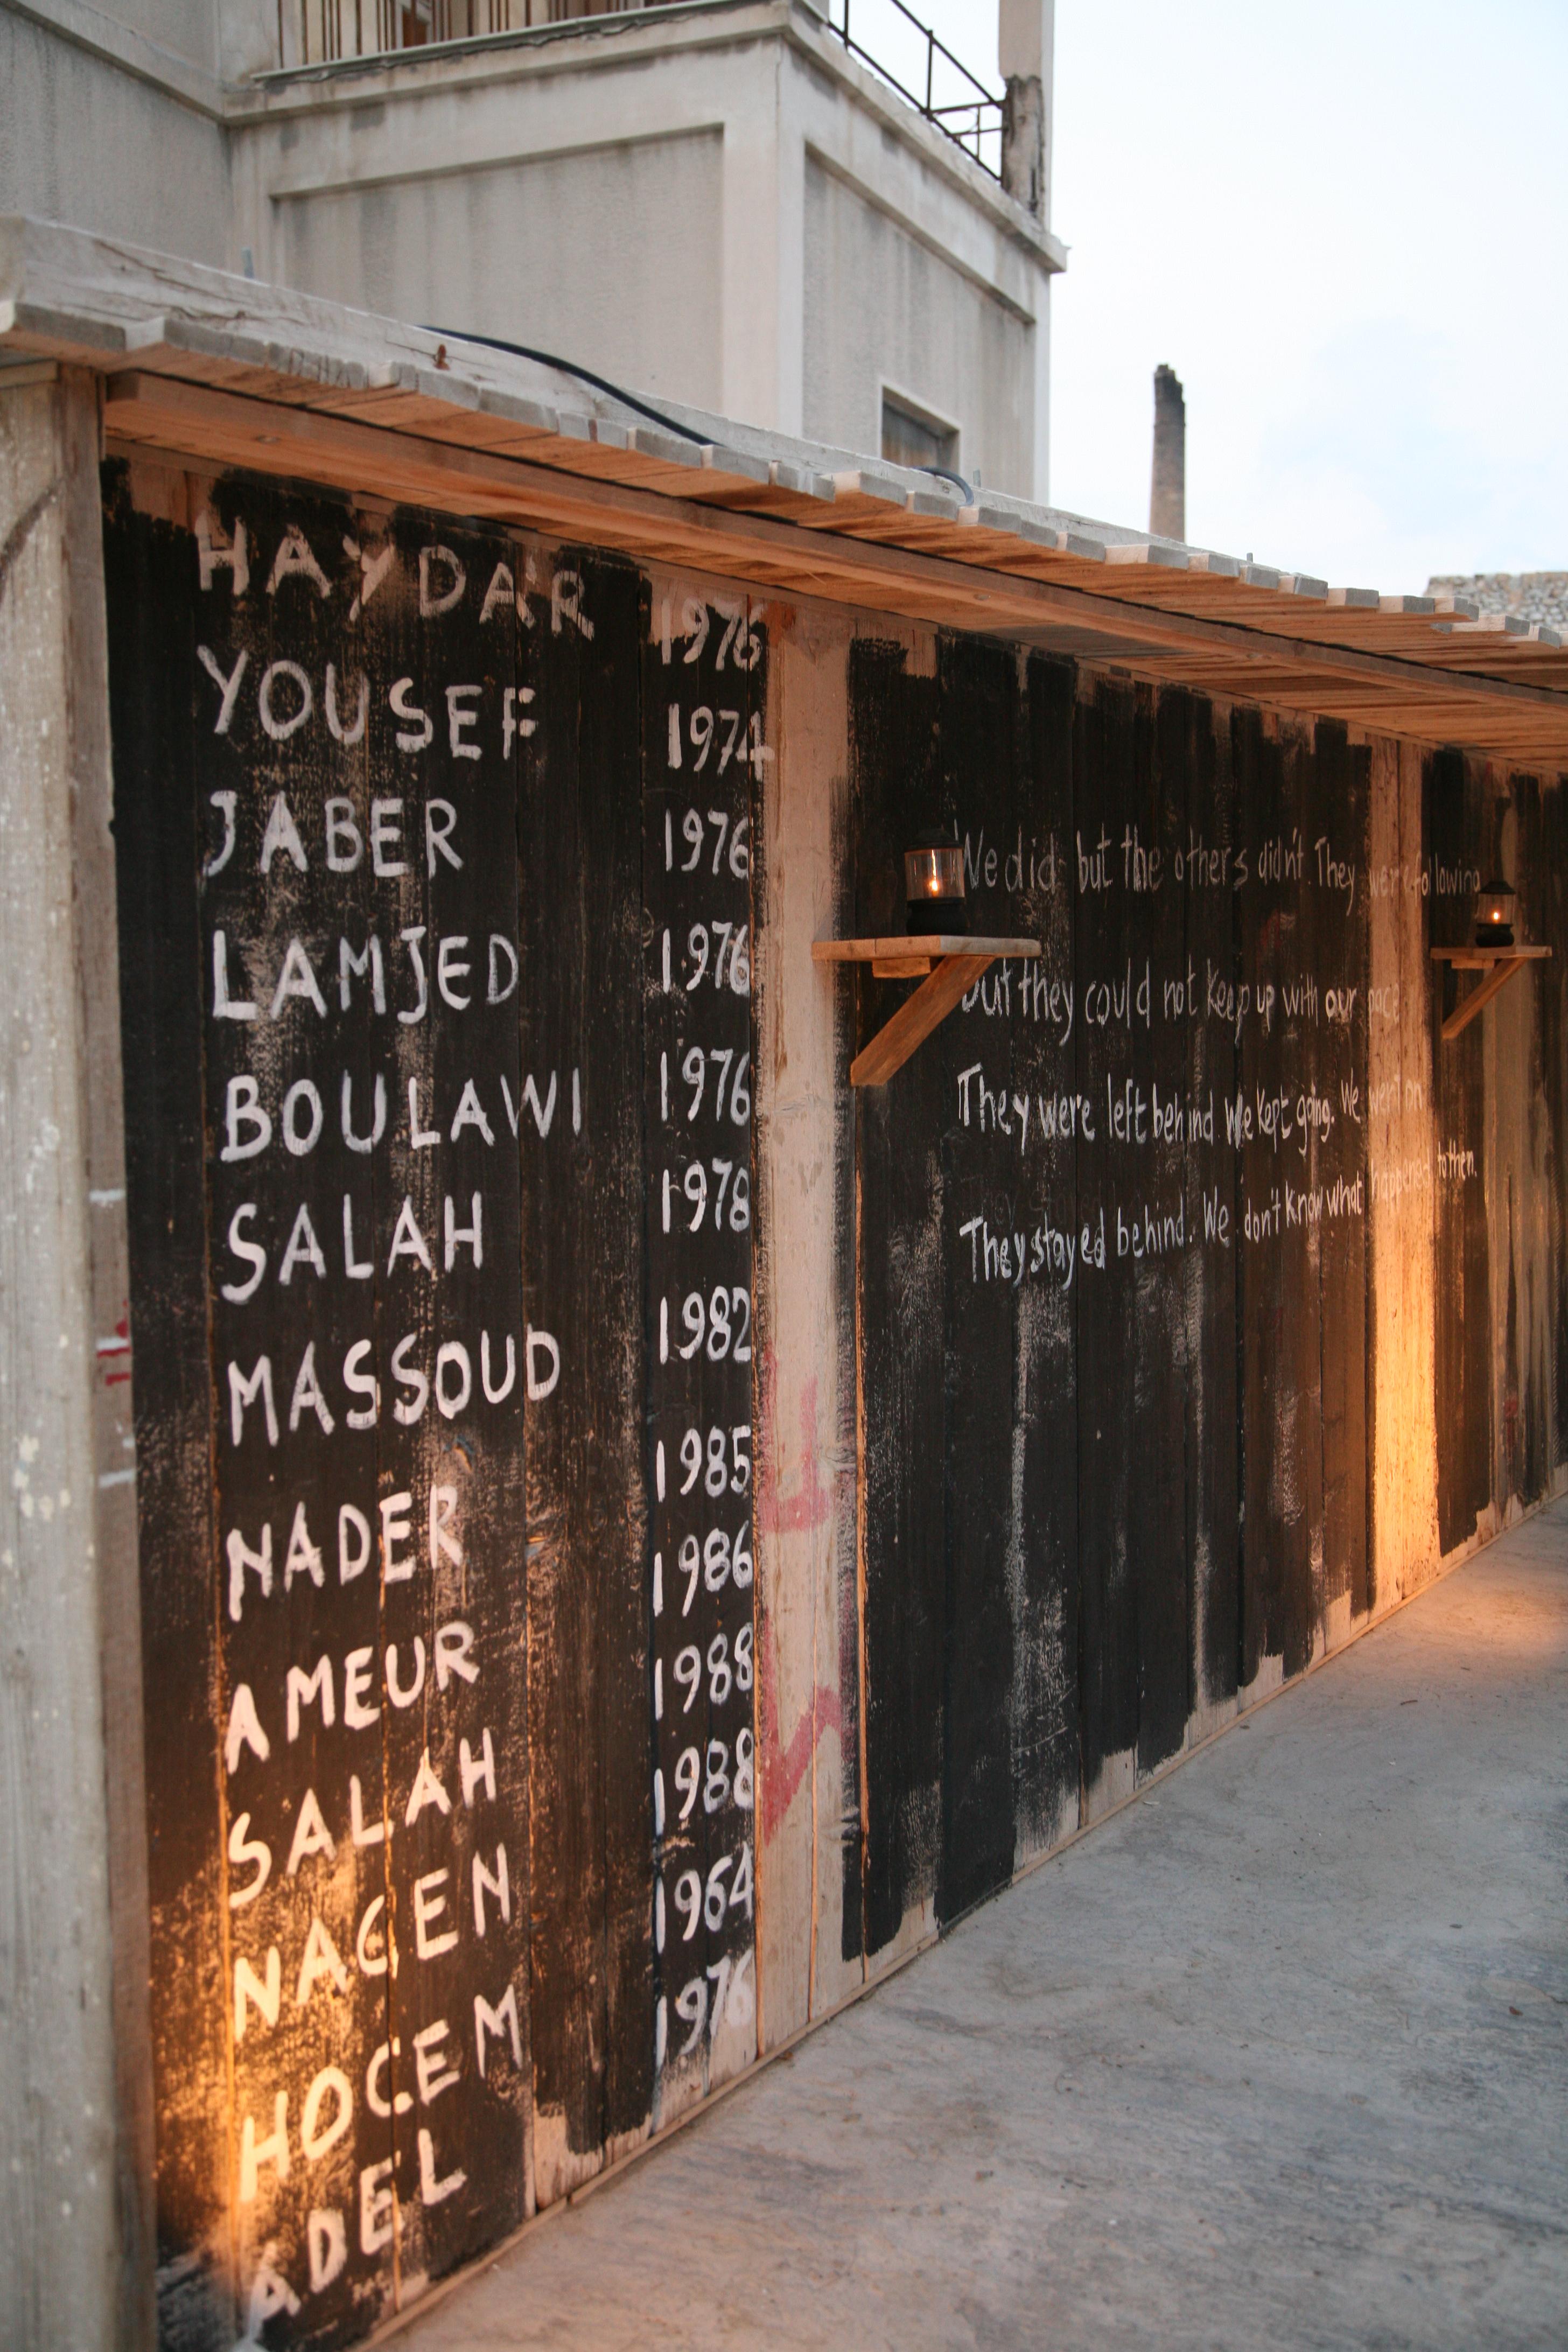 HAYDAR 1976
YOUSEF 1974
JABER 1976
LAMJED 1976
BOULAWI 1976
SALAH 1978
MASSOUD 1982
NADER 1985
AMEUR 1986
SALAH 1988
NACEN 1988
HOCEM 1964
ADEL 1976
We did but the others didn't. They were following
but they could not keep up with our pace
They were left behind. We kept going. We went on
They stayed behind. We don't know what happened to them.